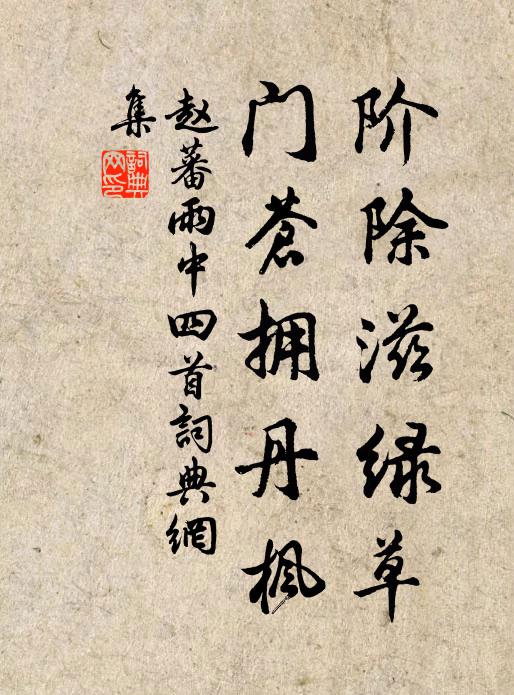 阶除滋绿草
门苍拥丹枫
赵蕃雨中四首詞典網
集
詞典网印